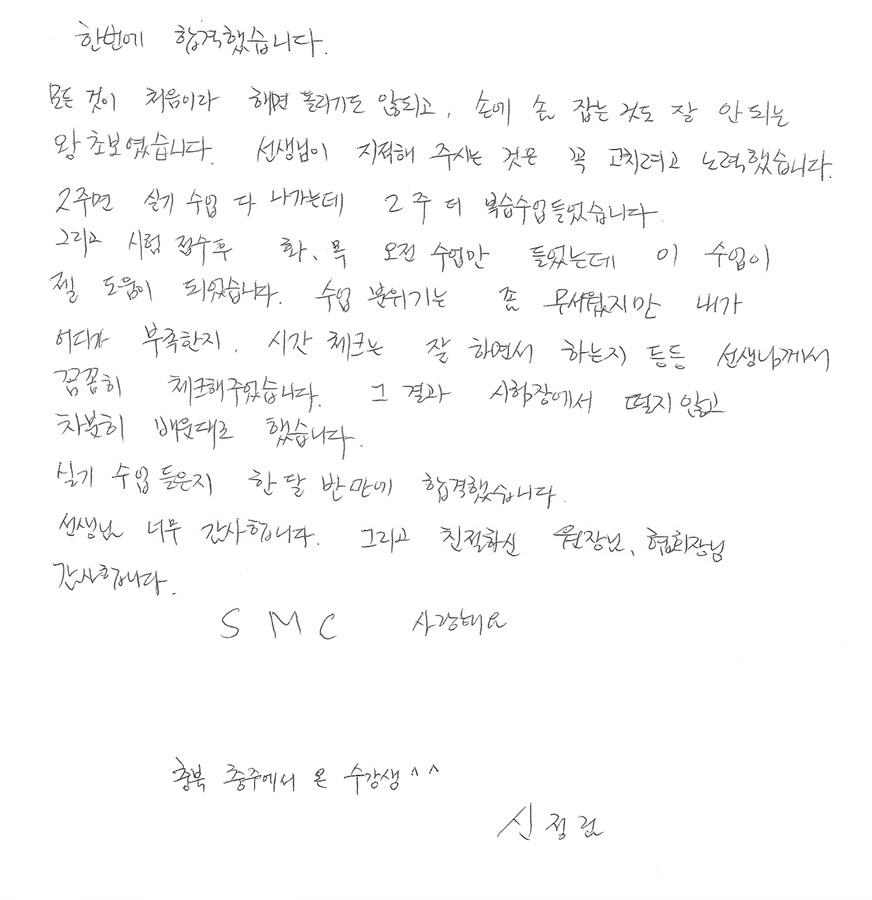 한번에 합격했습니다.
모든 것이 처음이라 해면 돌리기도 않되고, 손에 손 잡는 것도 잘 안 되는
왕초보였습니다. 선생님이 지적해 주시는 것은 꼭 고치려고 노력했습니다.
2주면 실기 수업 다 나가는데 2주 더 복습수업들었습니다.
그리고 시험 접수후 화, 목 오전 수업만 들었는데 이 수업이
젤 도움이 되었습니다. 수업 분위기는 좀 무서웠지만 내가
어디가 부족한지, 시간 체크는 잘 하면서 하는지 등등 선생님께서
꼼꼼히 체크해주었습니다. 그 결과 시험장에서 떨지않고
차분히 배운대로 했습니다.
실기 수업 들은지 한달 반만에 합격했습니다.
선생님 너무 감사합니다. 그리고 친절하신 원장님, 협회장님
감사합니다.
SMC 사랑해요
충북 충주에서 온 수강생^^
신정